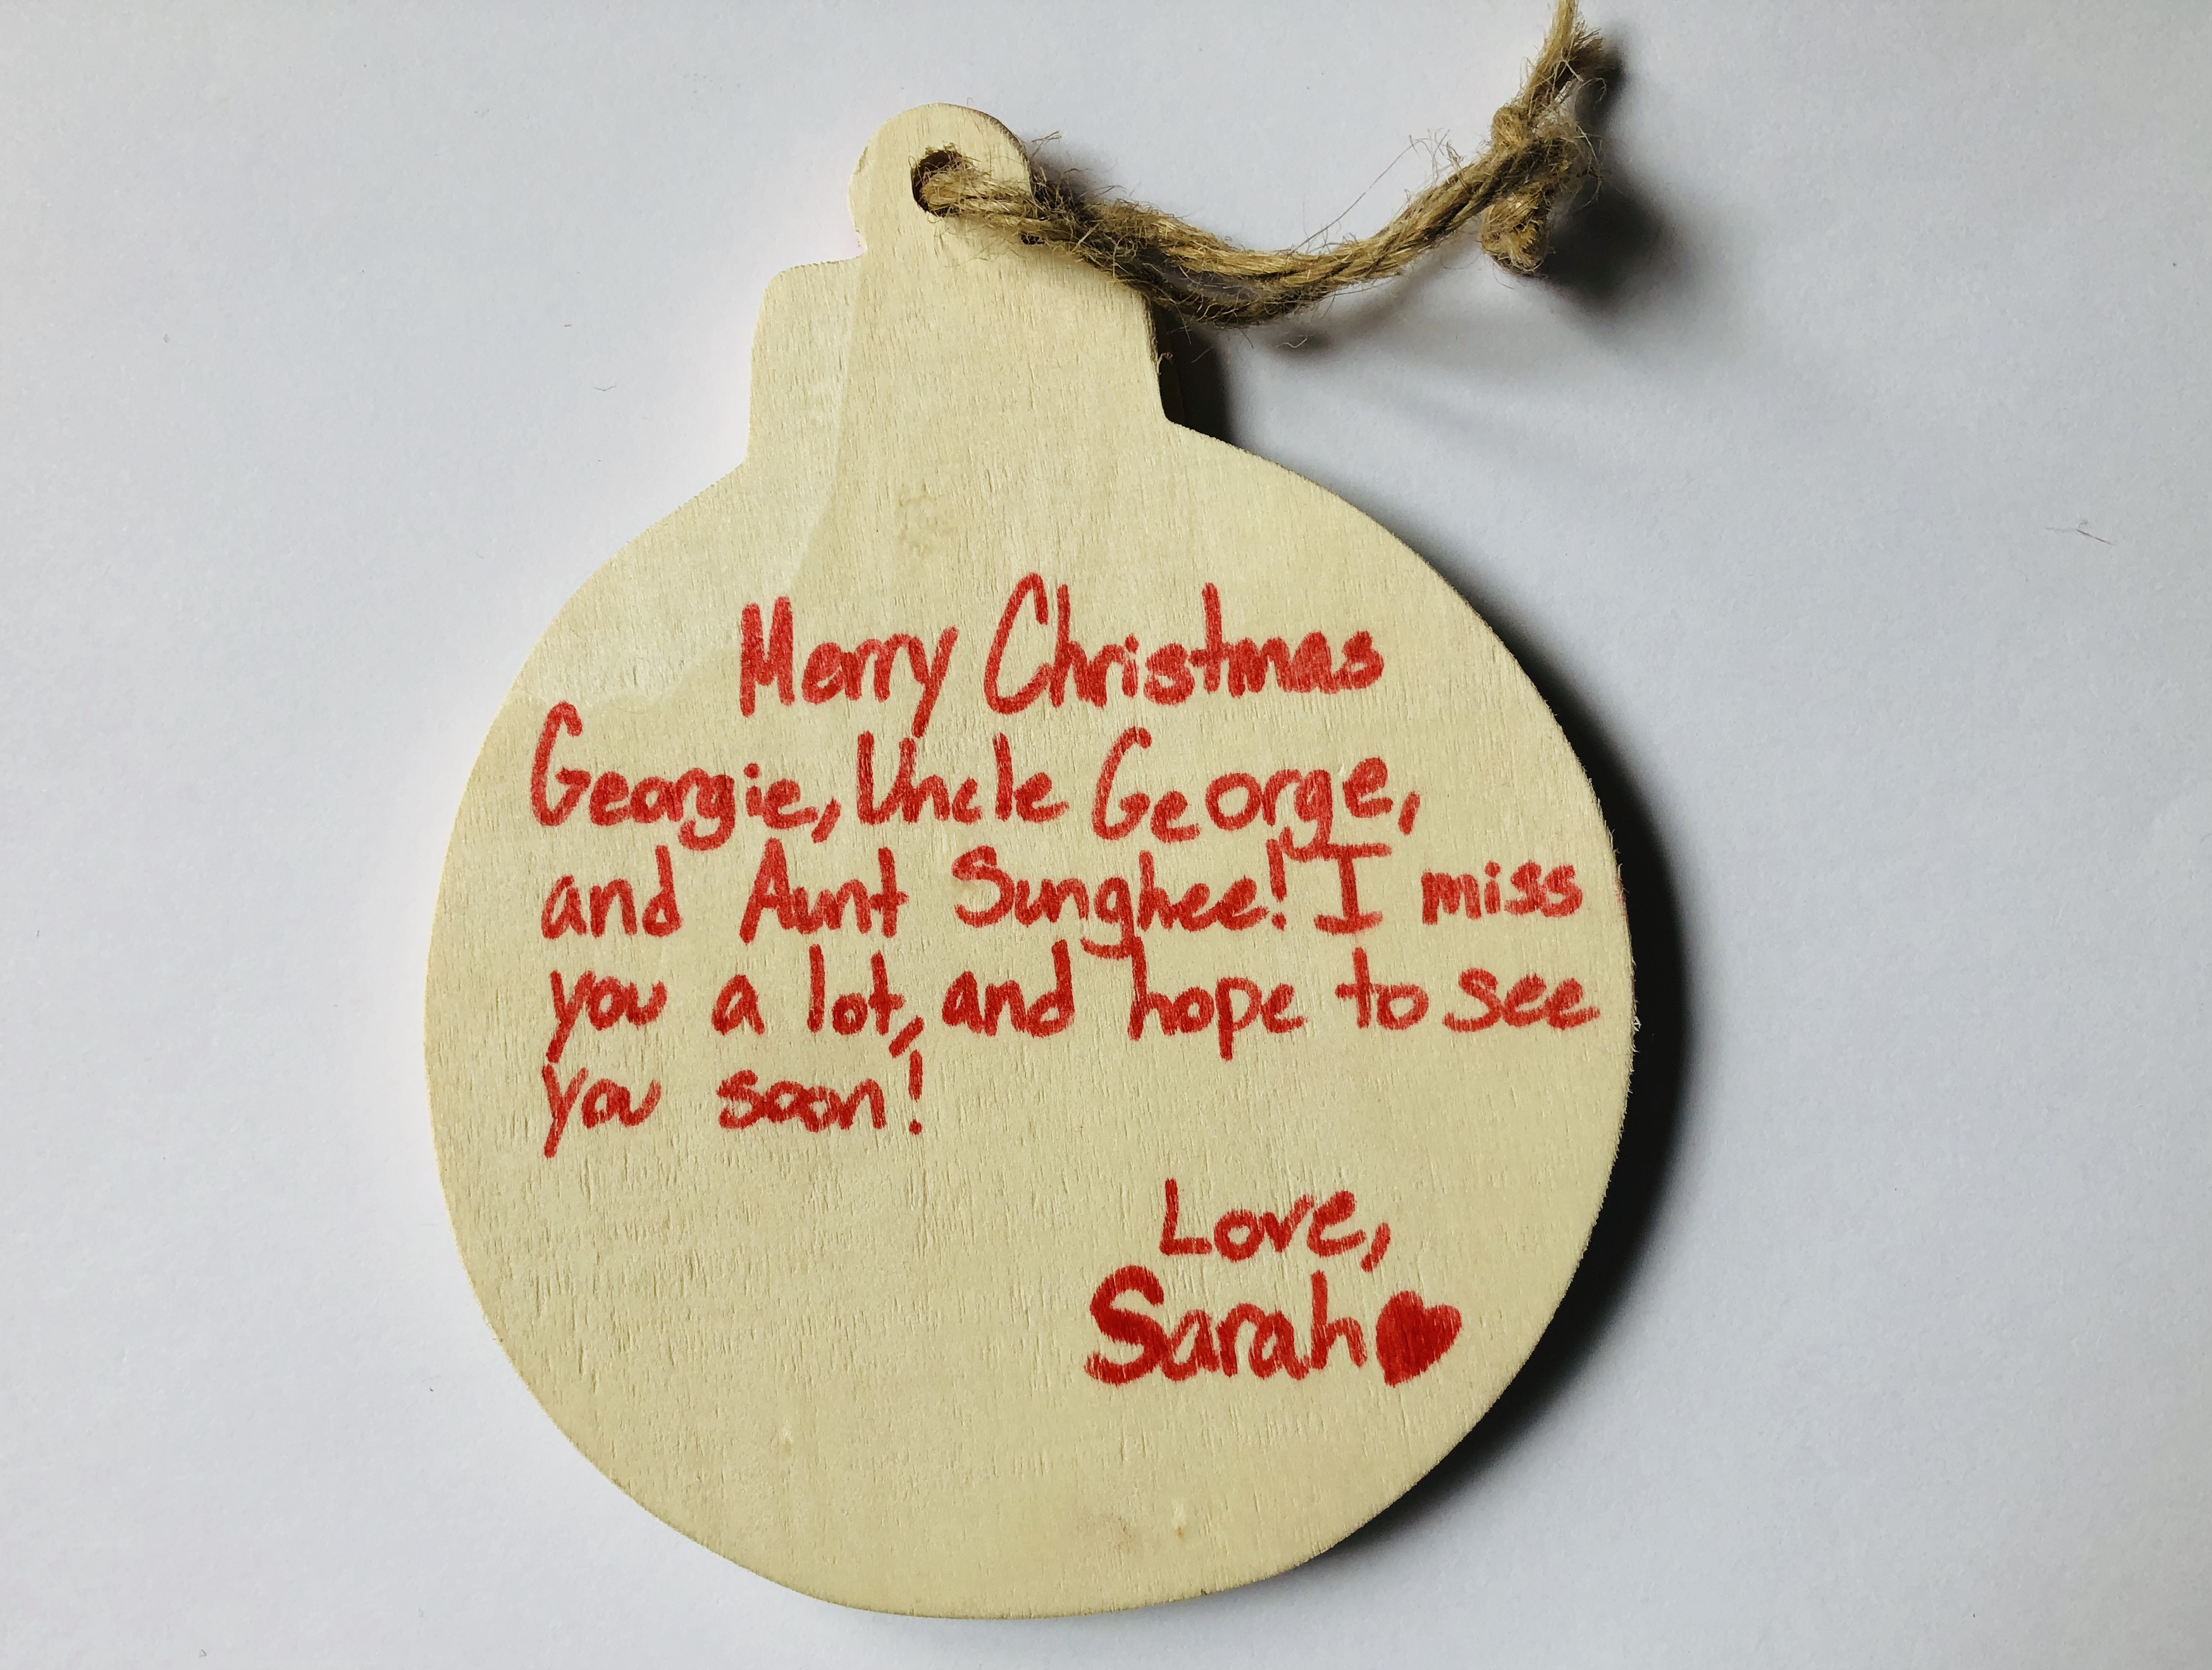 Merry Christmas
Georgie, Uncle George,
and Aunt Sunghee! I miss
you a lot, and hope to see
you soon!
Love,
Sarah♥